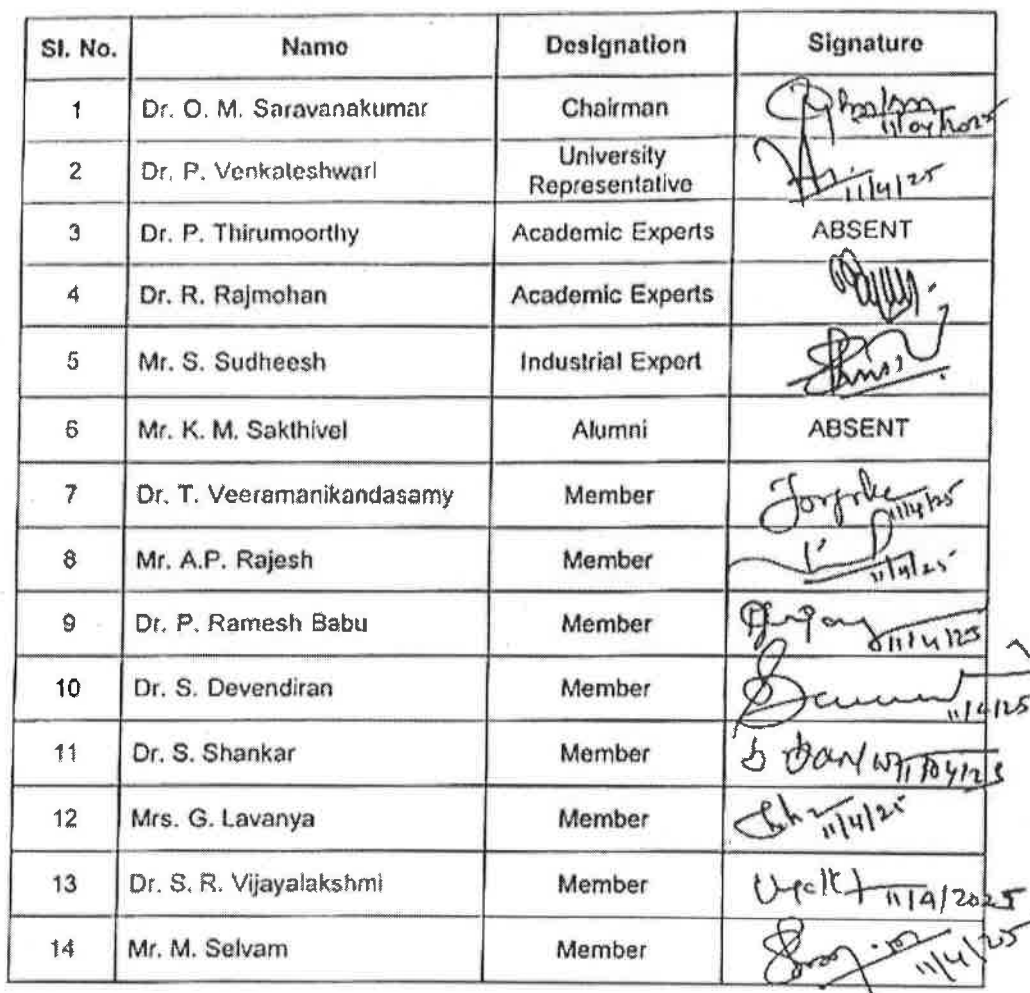 Sl. No. Name Designation Signature
1 Dr. O. M. Saravanakumar Chairman 11/04/2025
2 Dr. P. Venkateshwari University Representative 11/4/25
3 Dr. P. Thirumoorthy Academic Experts ABSENT
4 Dr. R. Rajmohan Academic Experts
5 Mr. S. Sudheesh Industrial Expert
6 Mr. K. M. Sakthivel Alumni ABSENT
7 Dr. T. Veeramanikandasamy Member 11/4/25
8 Mr. A.P. Rajesh Member 11/4/25
9 Dr. P. Ramesh Babu Member 11/4/25
10 Dr. S. Devendiran Member 11/4/25
11 Dr. S. Shankar Member 11/04/25
12 Mrs. G. Lavanya Member 11/4/25
13 Dr. S. R. Vijayalakshmi Member 11/4/2025
14 Mr. M. Selvam Member 11/4/25